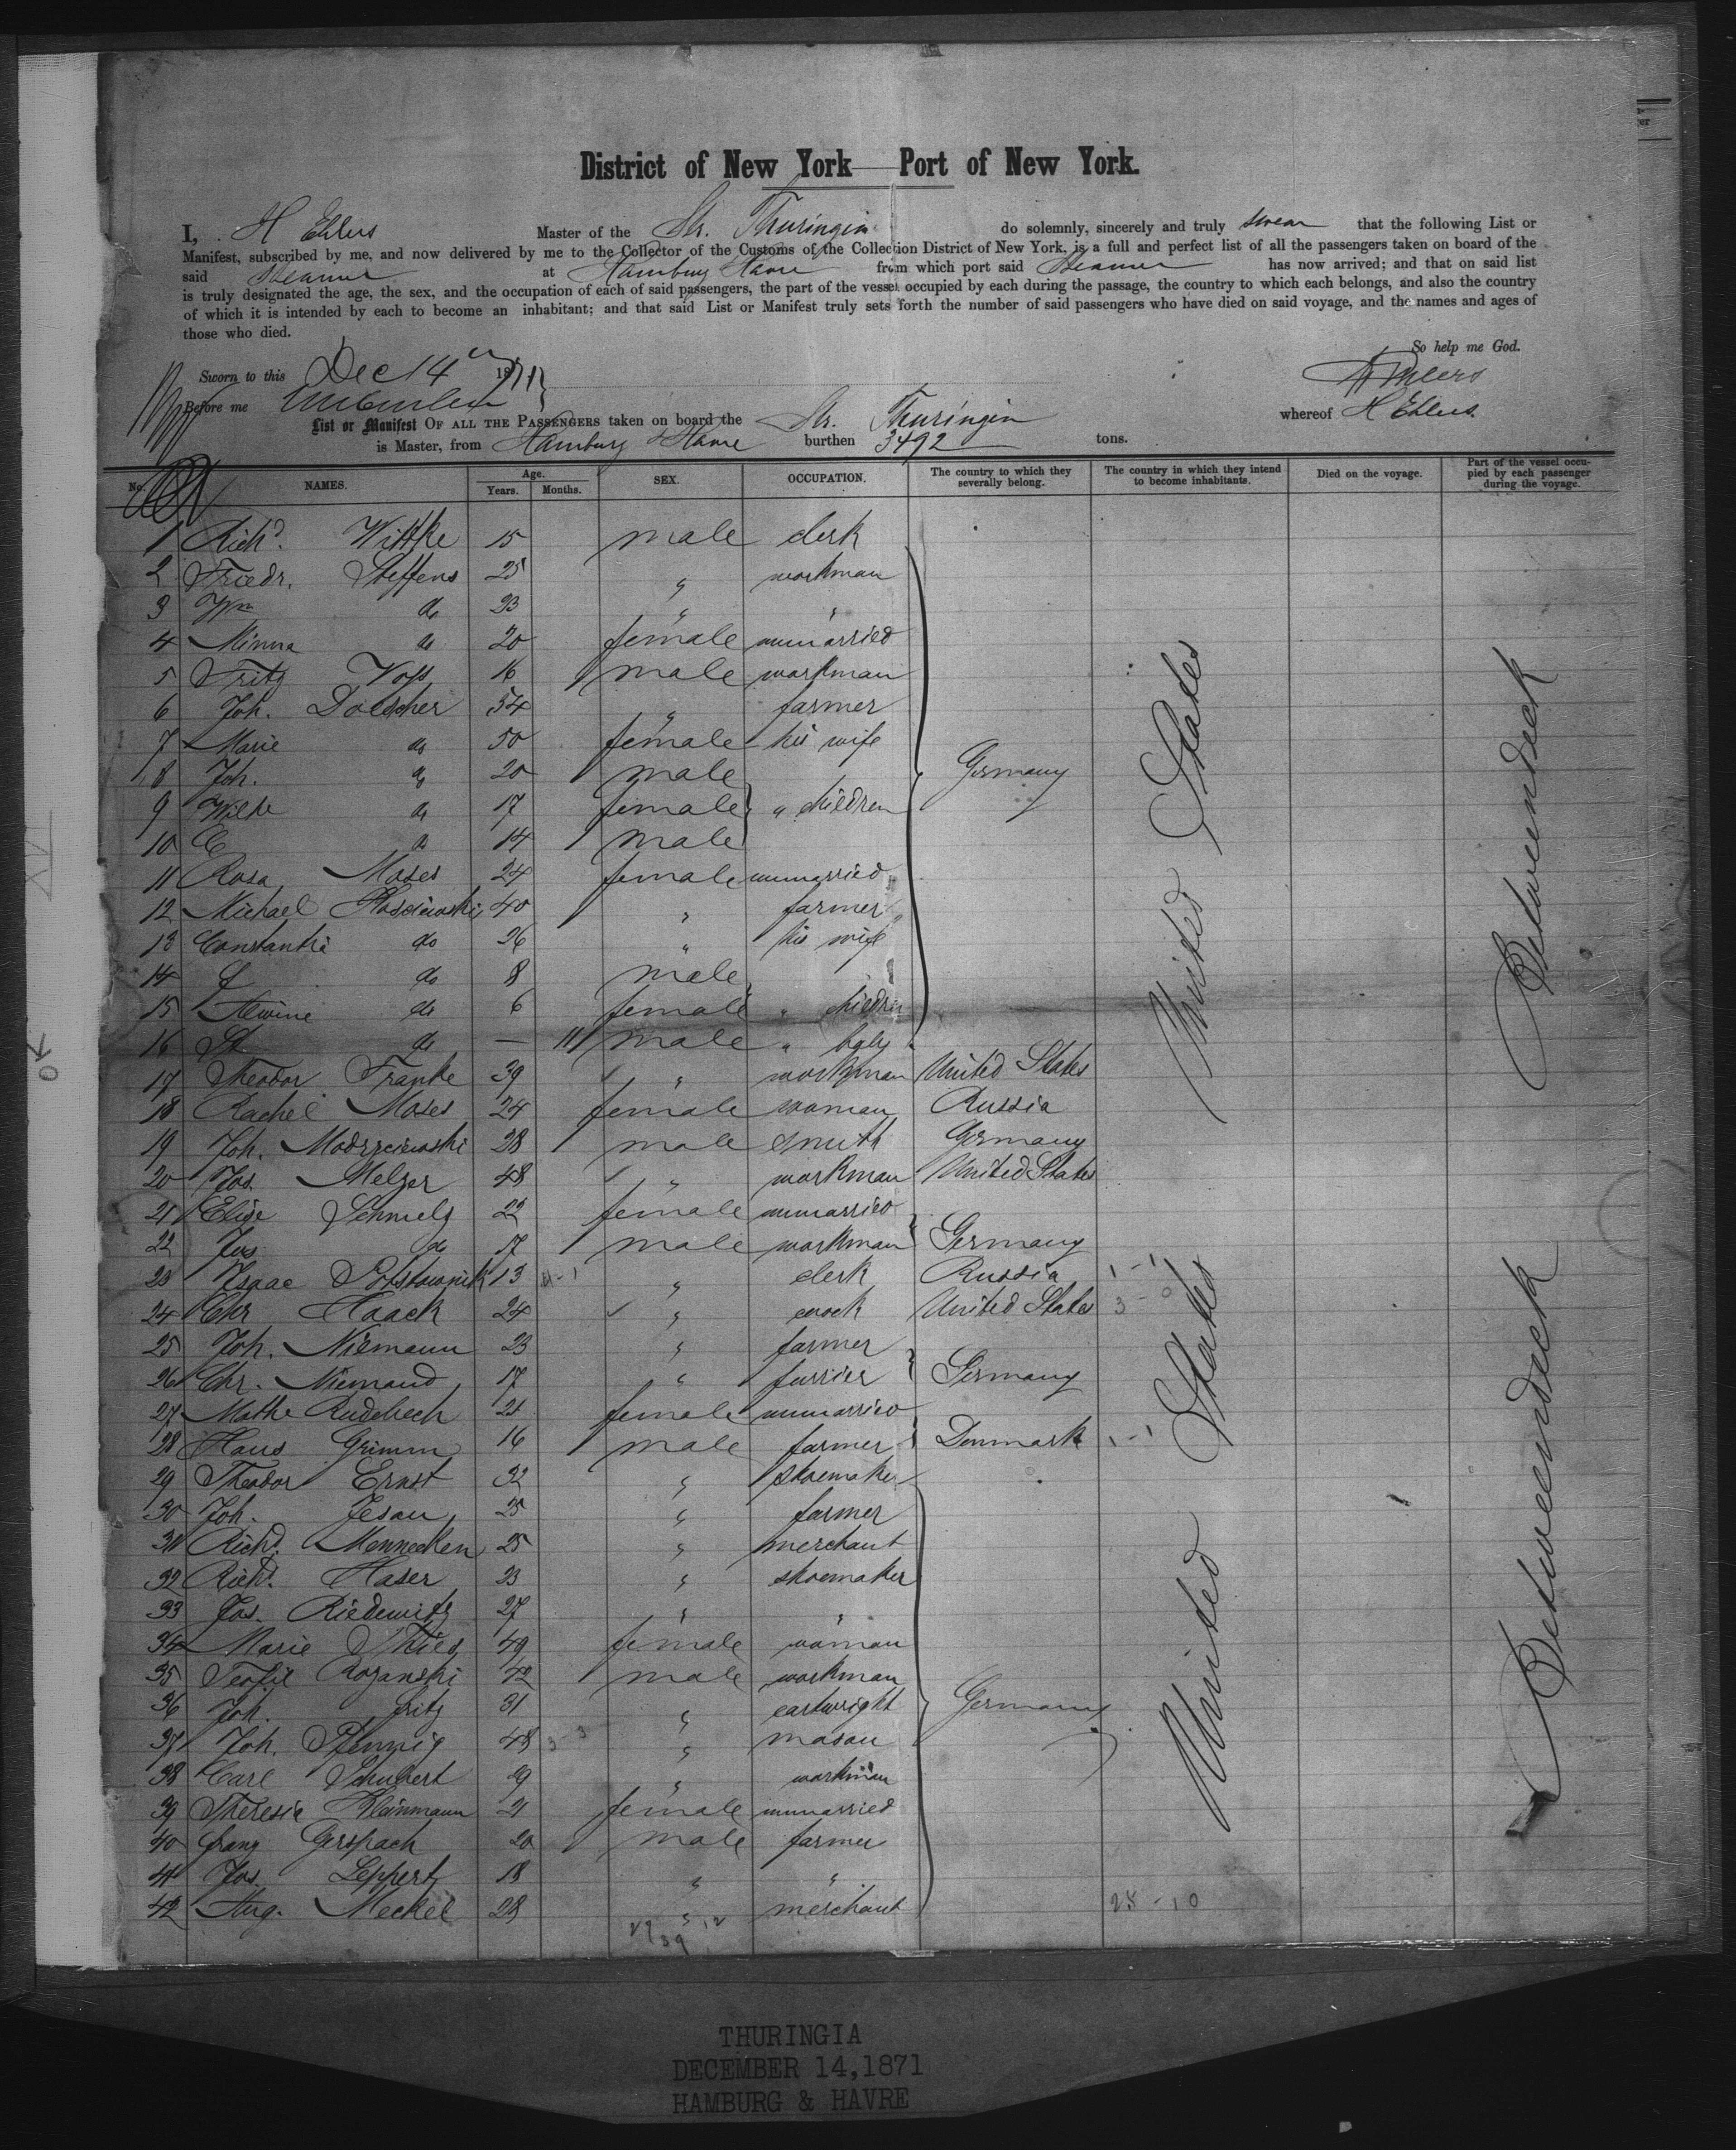 District of New York Port of New York.
I, H Ehlers Master of the Str. Thuringia do solemnly, sincerely and truly swear that the following List or
Manifest, subscribed by me, and now delivered by me to the Collector of the Customs of the Collection District of New York, is a full and perfect list of all the passengers taken on board of the
said Steamer at Hamburg Havre from which port said Steamer has now arrived; and that on said list
is truly designated the age, the sex, and the occupation of each of said passengers, the part of the vessel occupied by each during the passage, the country to which each belongs, and also the country
of which it is intended by each to become an inhabitant; and that said List or Manifest truly sets forth the number of said passengers who have died on said voyage, and the names and ages of
those who died.
So help me God.
Sworn to this Dec 14 1871
H Ehlers
Before me
List or Manifest OF ALL THE PASSENGERS taken on board the Str. Thuringia whereof H Ehlers.
is Master, from Hamburg & Havre burthen 3492 tons.
No. NAMES. Age. Years. Months. SEX. OCCUPATION. The country to which they severally belong. The country in which they intend to become inhabitants. Died on the voyage. Part of the vessel occupied by each passenger during the voyage.
1 Richd. Wittke 15 male clerk
2 Friedr. Steffens 25 " workman
3 Wm do 23 " "
4 Minna do 20 female unmarried
5 Fritz Voss 16 male workman
6 Joh. Doescher 54 " farmer
7 Marie do 50 female his wife
8 Joh. do 20 male
9 Wilhe do 17 female " children Germany
10 C do 14 male
11 Rosa Moses 24 female unmarried
12 Michael 40 " farmer
13 Constantia do 26 " his wife
14 do 8 male
15 do 6 female " children
16 St do — 11 male " baby
17 Theodor Franke 39 " workman United States
18 Rachel Moses 24 female woman Russia
19 Joh. Modrzciewski 28 male smith Germany
20 Jos. Melzer 48 " workman United States
21 Elise Schmelz 22 female unmarried
22 Jos. do 17 male workman Germany
23 Isaac 13 " clerk Russia
24 Chr Haack 24 " cook United States
25 Joh. Niemann 23 " farmer
26 Chr. Niemand 17 " furrier Germany
27 Mathe Rudebech 21 female unmarried
28 Hans Grimm 16 male farmer Denmark
29 Theodor Ernst 32 " shoemaker
30 Joh. Jesau 25 " farmer
31 Richd. Mennecken 25 " merchant
32 Richd. Haser 23 " shoemaker
33 Jos. Riedewitz 27 " "
34 Marie Thies 49 female woman
35 Teofil Rozanski 42 male workman
36 Joh. Fritz 31 " cartwright Germany
37 Joh. Pfennig 48 " mason
38 Carl Schubert 19 " workman
39 Theresia Kleinmann 21 female unmarried
40 Franz Gerspach 20 male farmer
41 Jos. Leppert 18 " "
42 Aug. Meckel 28 " merchant
United States
United States
Betweendeck
Betweendeck
28-10
OK
XVI
THURINGIA
DECEMBER 14,1871
HAMBURG & HAVRE